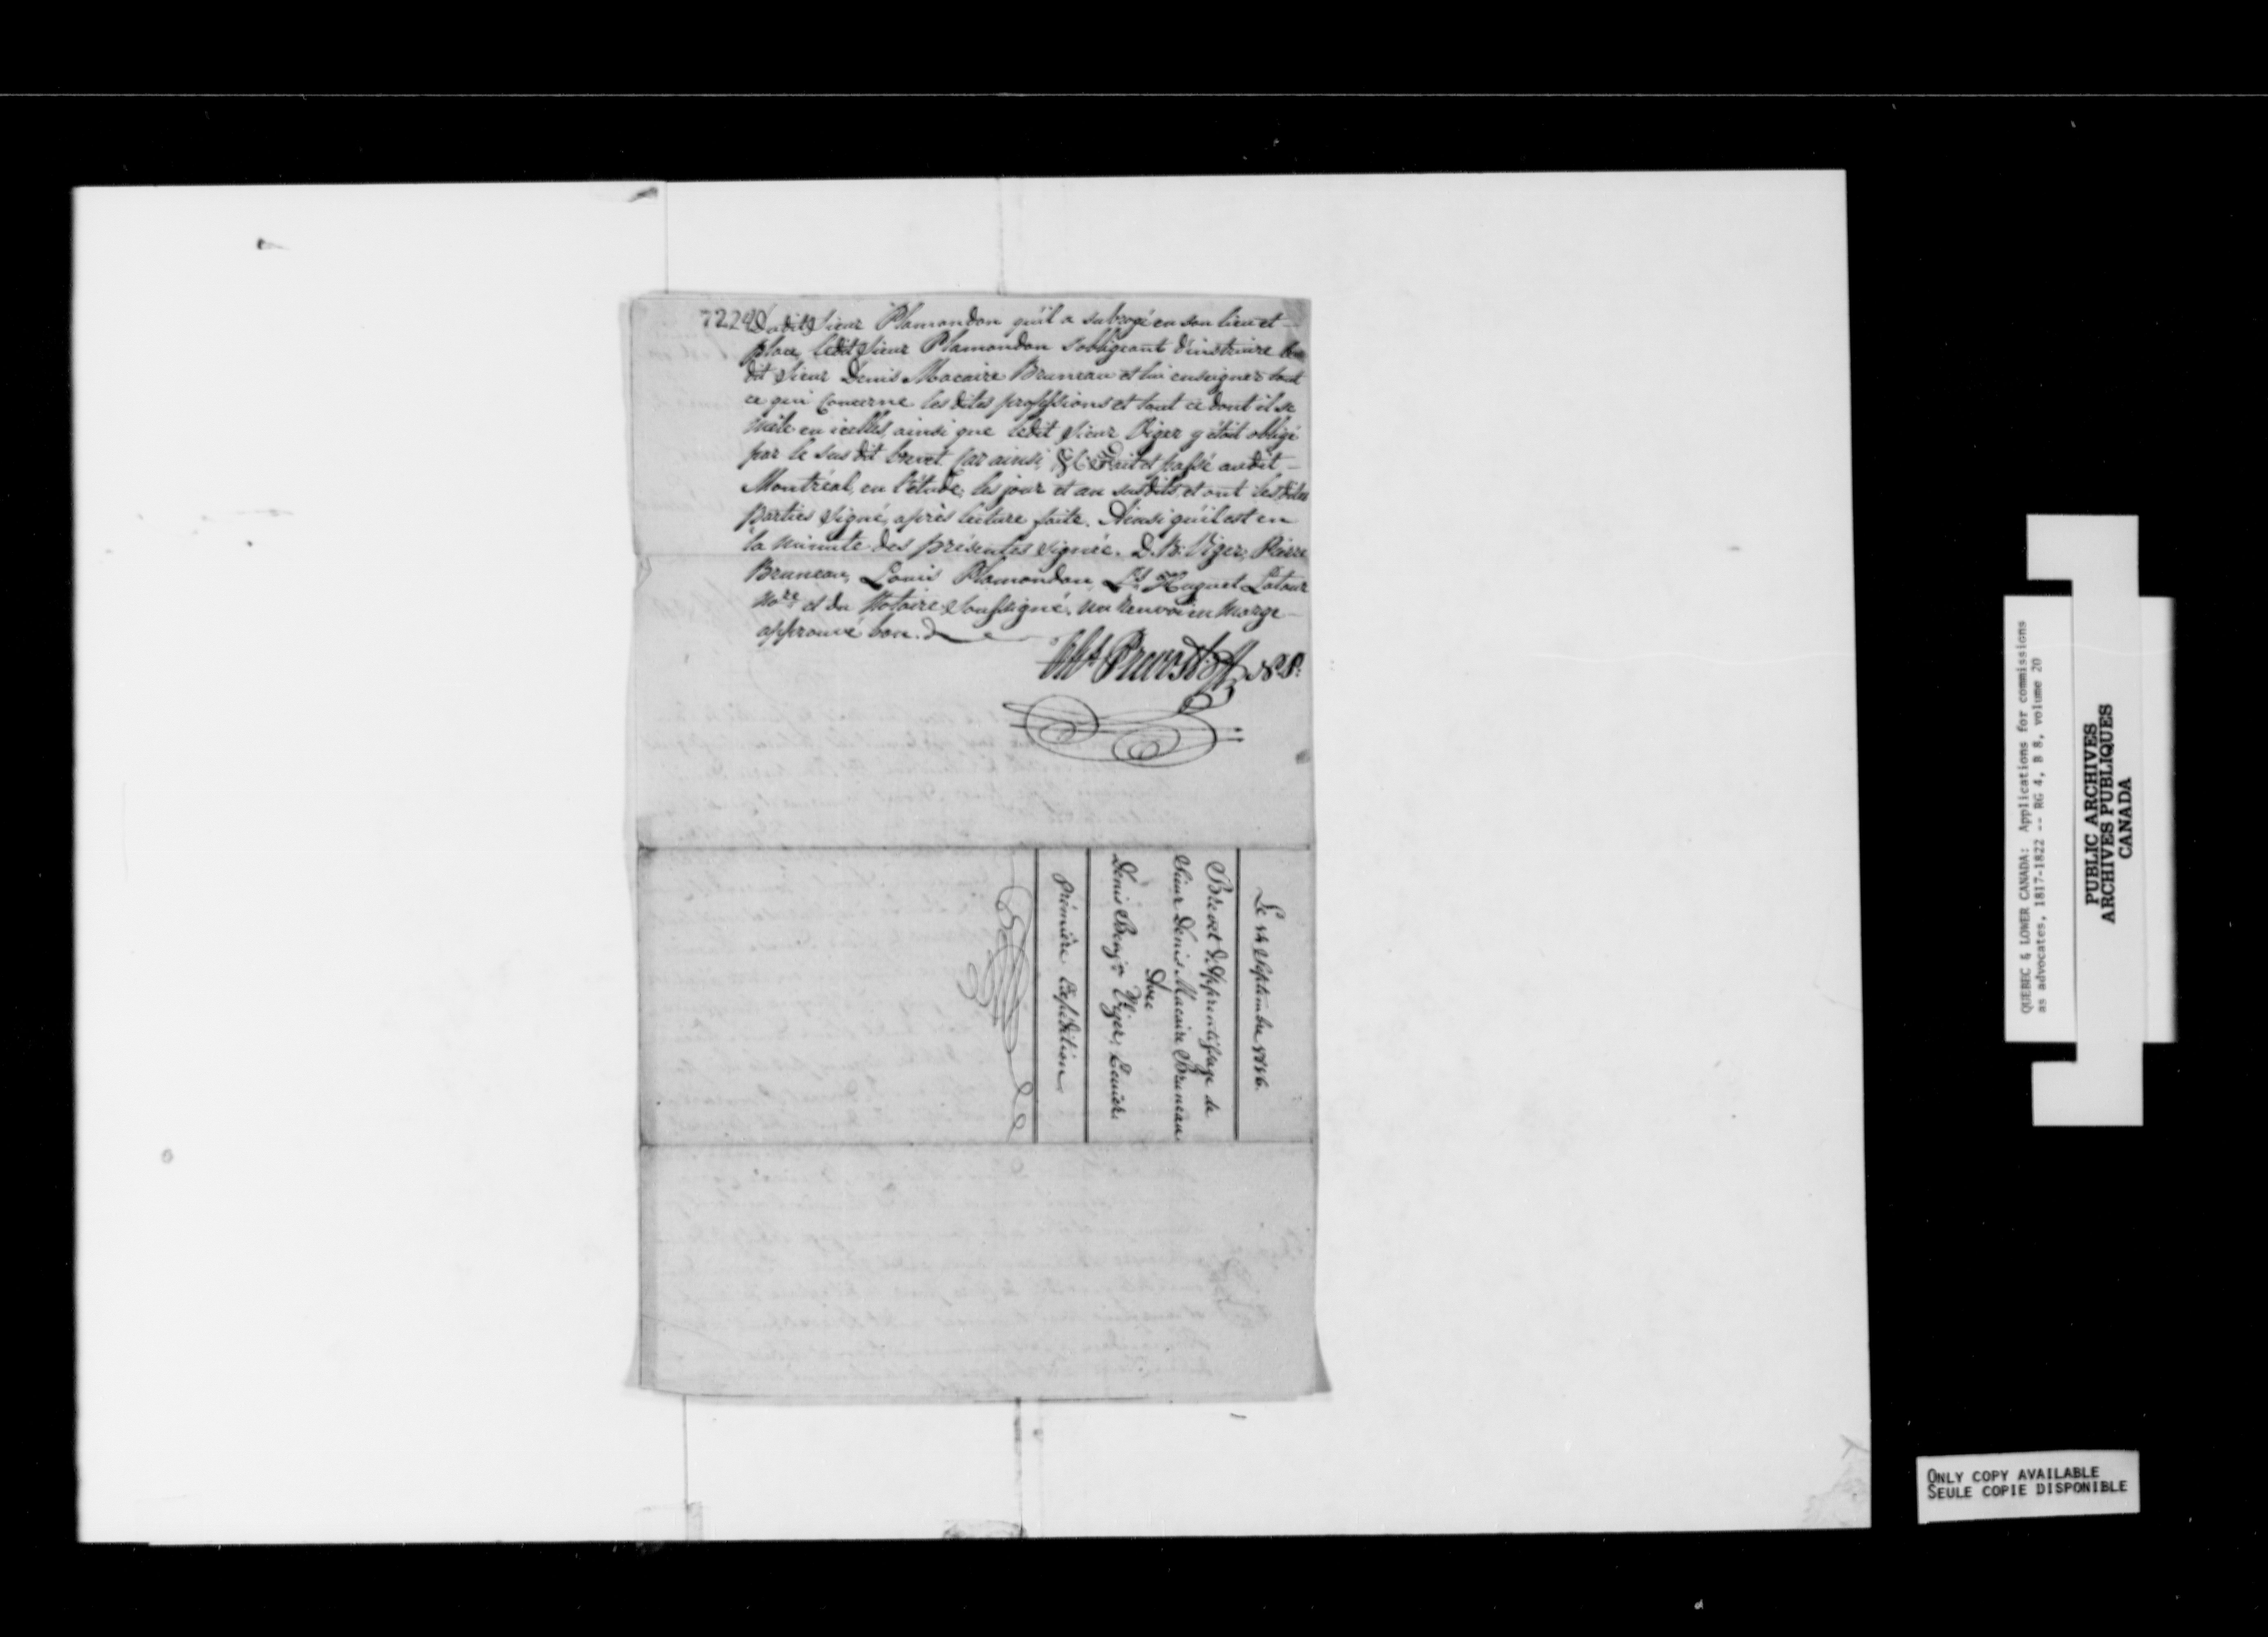 7224
Dudit Sieur Plamondon qu'il a subrogé en son lieu et
place, ledit Sieur Plamondon s'obligeant d'instruire le
dit Sieur Denis Macaire Bruneau et lui enseigner tout
ce qui concerne les dites professions et tout ce dont il se
mêle en icelles, ainsi que ledit Sieur Viger y était obligé
par le sus dit brevet Car ainsi, &c. Fait et passé audit
Montréal, en l'étude, les jour et an susdits, et ont les dites
Parties signé, après lecture faite. Ainsi qu'il est en
la minute des présentes signée. D. B. Viger, Pierre
Bruneau, Louis Plamondon, Ls. Huguet Latour
Nore. et du Notaire soussigné. un renvoi en marge
approuvé bon.
Chs Prevost N.P.
Le 14 Septembre 1816.
Brevet d'Apprentissage de
Sieur Denis Macaire Bruneau
Avec
Denis Benjn. Viger, Ecuier.
Première Expédition
QUEBEC & LOWER CANADA: Applications for commissions
as advocates, 1817-1822 -- RG 4, B 8, volume 20
PUBLIC ARCHIVES
ARCHIVES PUBLIQUES
CANADA
ONLY COPY AVAILABLE
SEULE COPIE DISPONIBLE